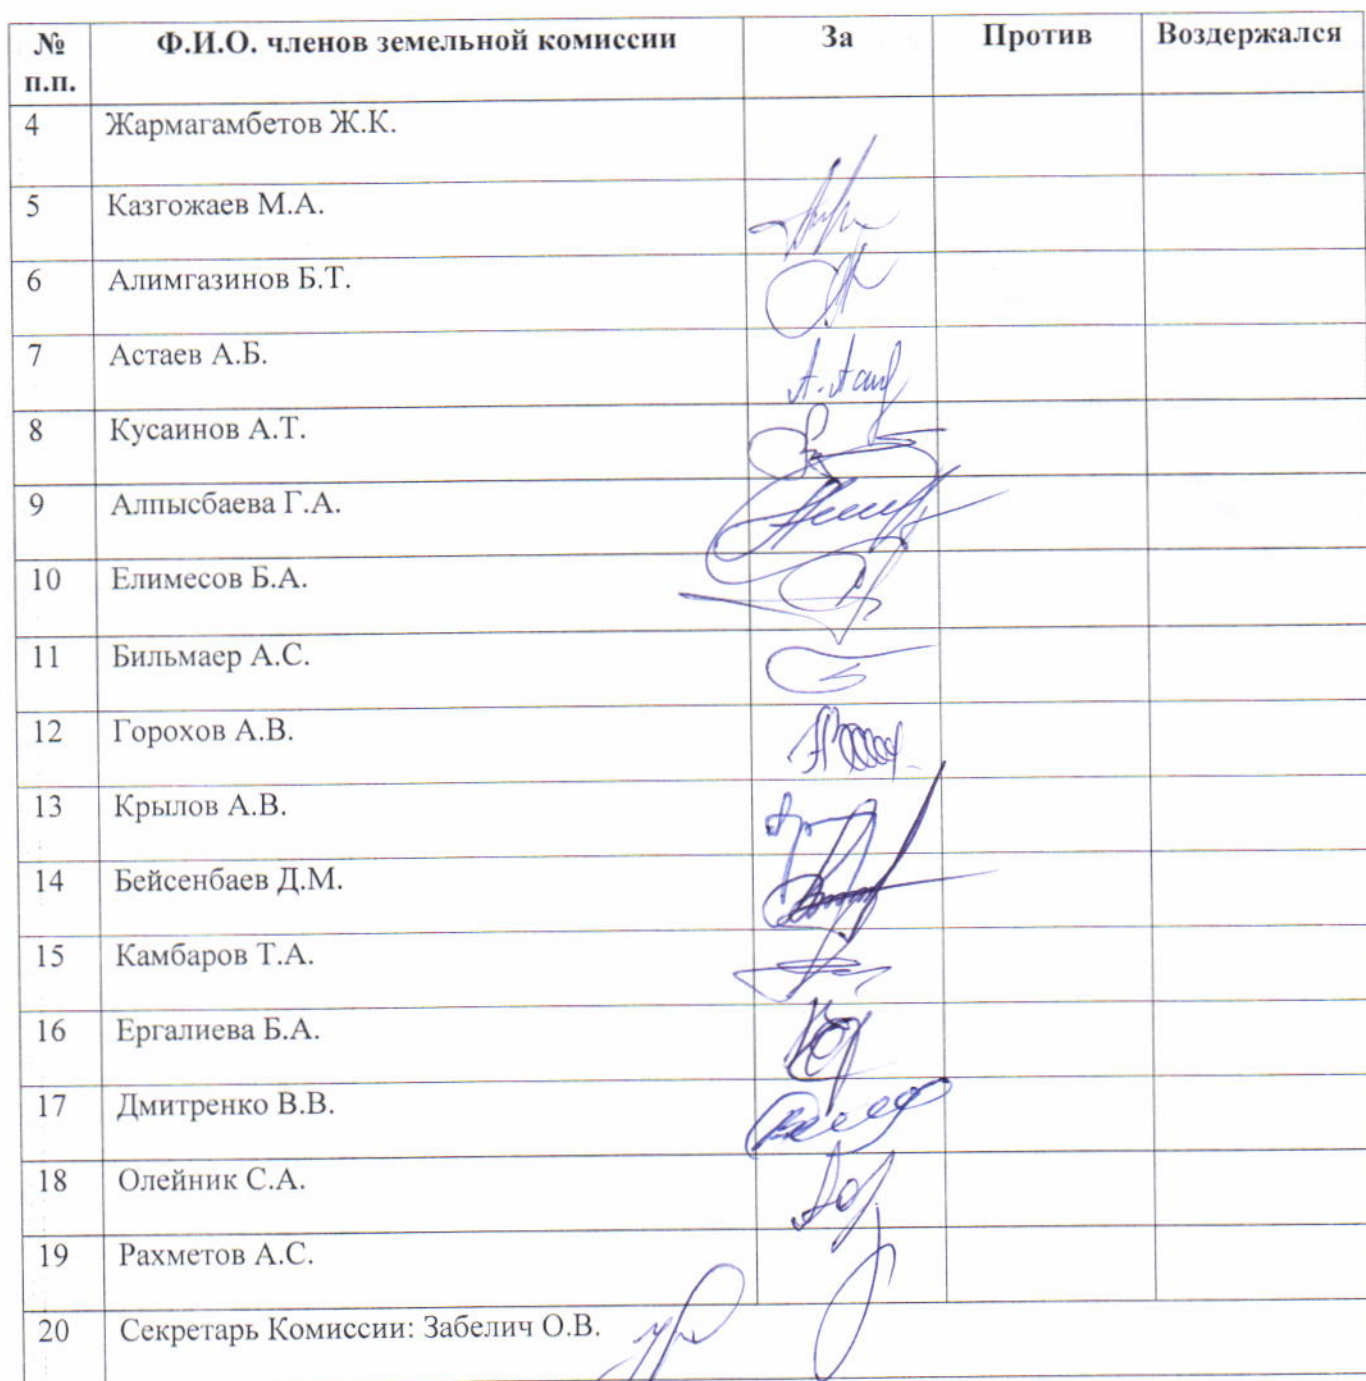 № п.п. Ф.И.О. членов земельной комиссии За Против Воздержался
4 Жармагамбетов Ж.К.
5 Казгожаев М.А.
6 Алимгазинов Б.Т.
7 Астаев А.Б.
8 Кусаинов А.Т.
9 Алпысбаева Г.А.
10 Елимесов Б.А.
11 Бильмаер А.С.
12 Горохов А.В.
13 Крылов А.В.
14 Бейсенбаев Д.М.
15 Камбаров Т.А.
16 Ергалиева Б.А.
17 Дмитренко В.В.
18 Олейник С.А.
19 Рахметов А.С.
20 Секретарь Комиссии: Забелич О.В.